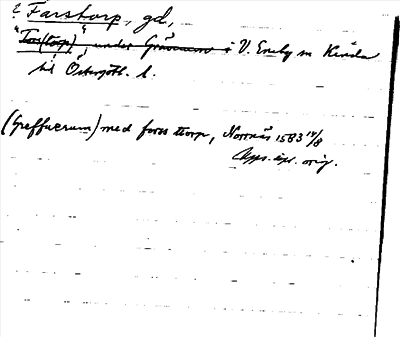 ? Farstorp, gd,
"Fors(torp)", under Gräverum i V. Eneby sn Kinda
hd Östergötl. l.
(Greffuerum) med foors torp, Norrnäs 1583 14/8
Upps. öpl. orig.